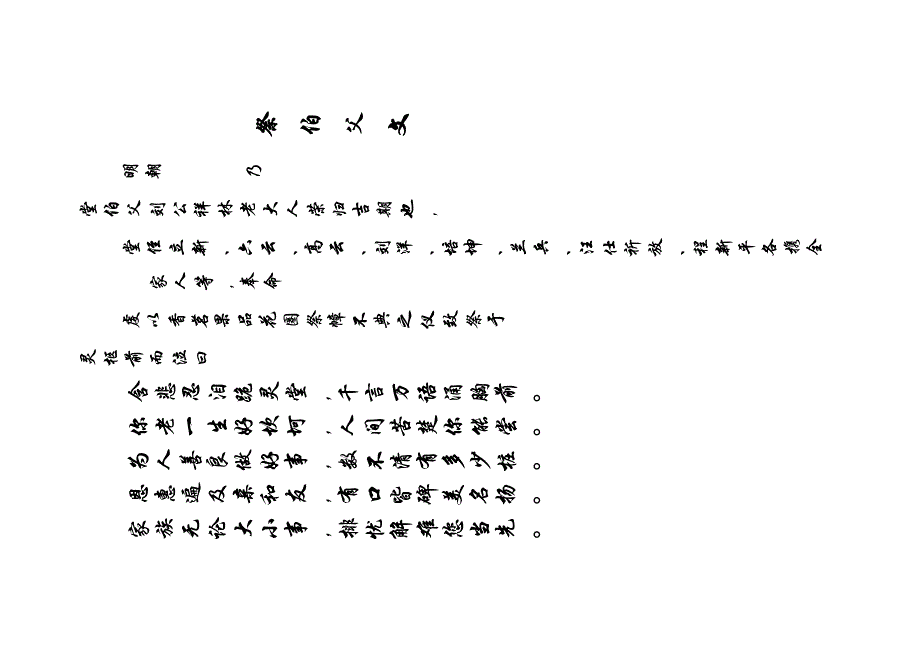 祭伯父文
明朝 乃
堂伯父刘公祥林老大人荣归吉期也，
堂侄立新、六云、高云、刘洋、培坤、兰兵、汪仕祈放、程新平各携全
家人等，奉命
虔以香茗果品花圈祭幛不典之仪致祭于
灵柩前而泣曰
含悲忍泪跪灵堂，千言万语涌胸前。
你老一生好坎坷，人间苦楚你能尝。
为人善良做好事，数不清有多少桩。
恩惠遍及亲和友，有口皆碑美名扬。
家族无论大小事，排忧解难您当先。